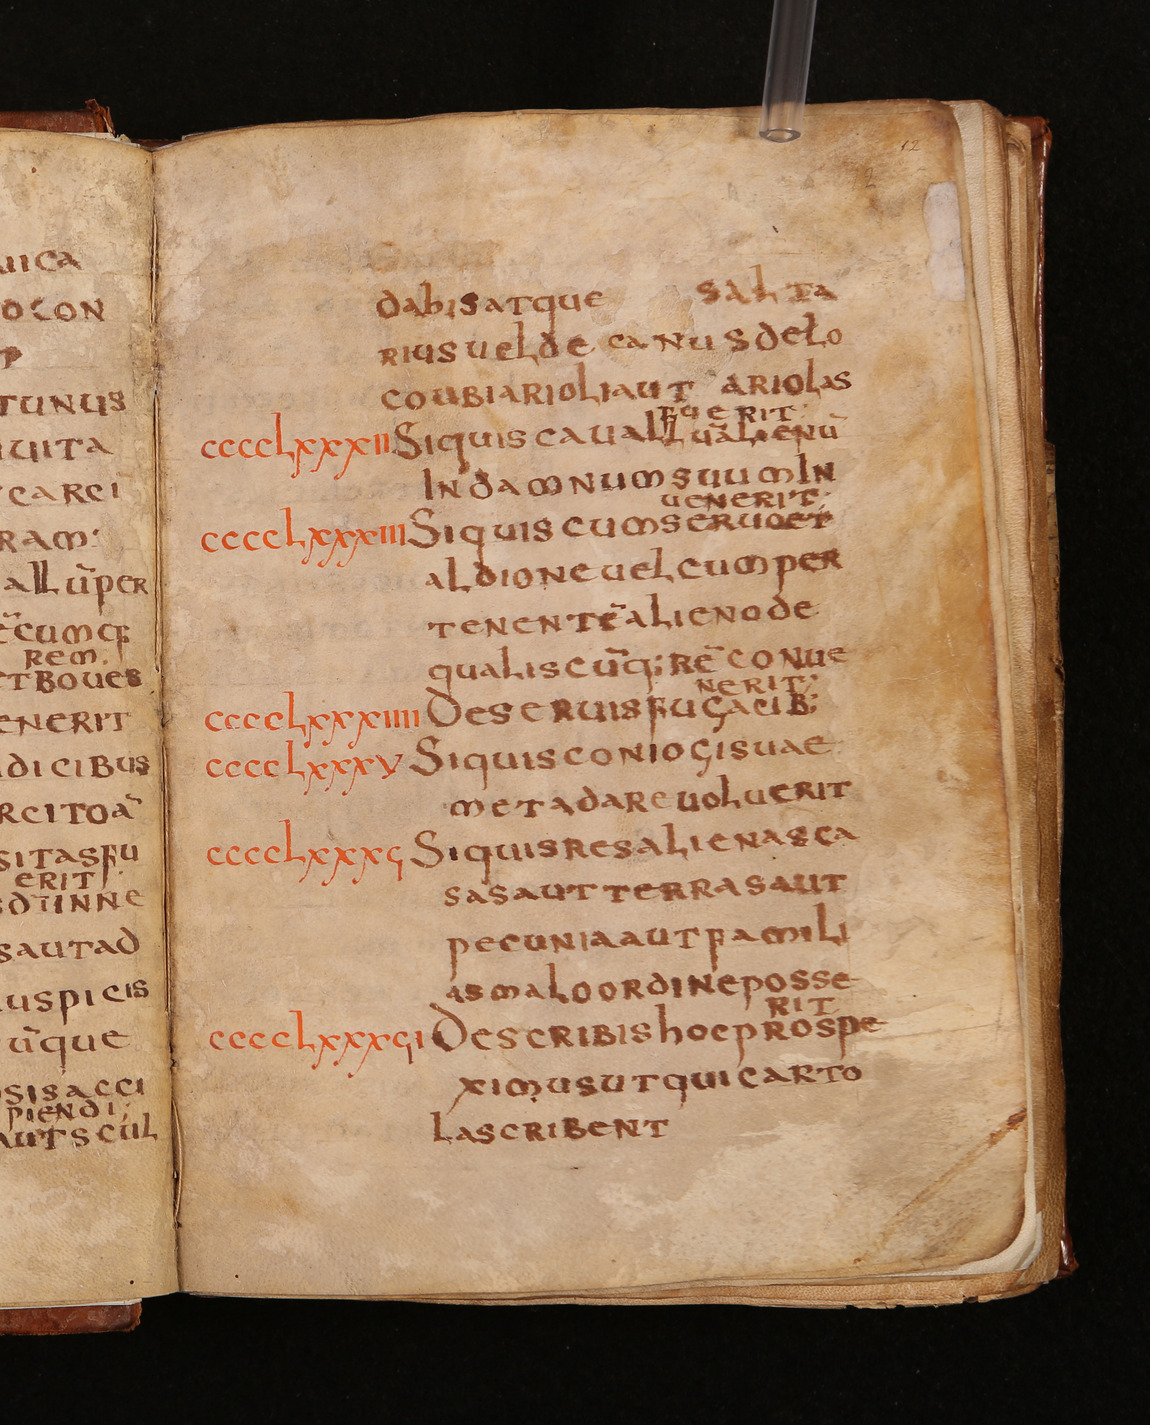 uica
ocon
p
tunus
uita
carci
ram:
all ūper
ēcumq;
rem.
et boues
enerit
dicibus
rcitoā
sitasfu
erit;
sdūinne
sautad
uspicis
ūque
osisacci
piendi;
autscul
12
dabisatque salta
riusuelde canusdeło
coubiarioliaut ariolas
fuerit;
cccclxxxii Siquiscauallūalienū
Indamnumsuumin
uenerit;
cccclxxxiii Siquiscumseruoet
aldioneuelcumper
tenentēalienode
qualiscūq; rē conue
nerit;
cccclxxxiiii Deseruisfugacib;
cccclxxxv Siquisconiogisuae
metadareuoluerit
cccclxxxϛ Siquisresalienasca
sasautterrasaut
pecuniaautfamili
asmaloordineposse
rit
cccclxxxϛi Describishocprospe
ximusutquicarto
lascribent